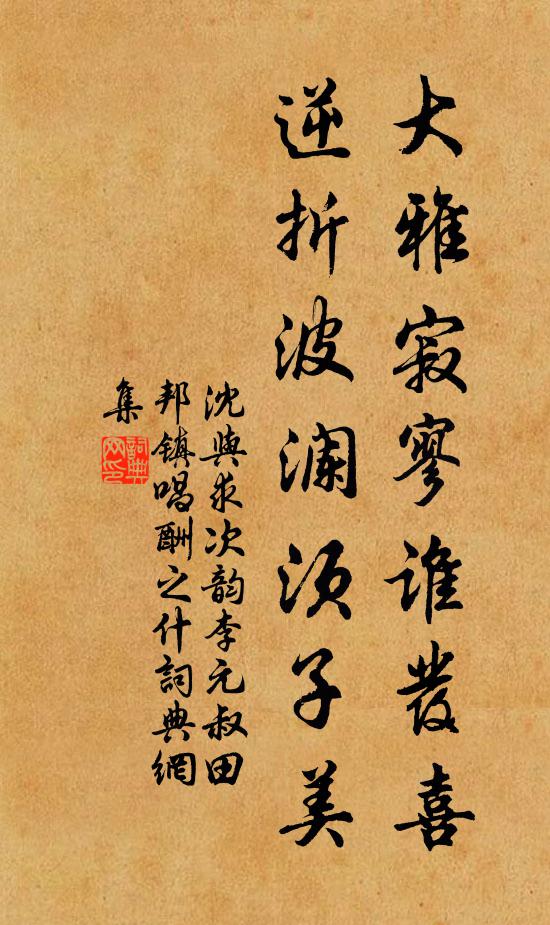 大雅寂寥谁发喜
逆折波澜须子美
沈與求次韵李元叔田
邦镇唱酬之什詞典網
集
詞典网印